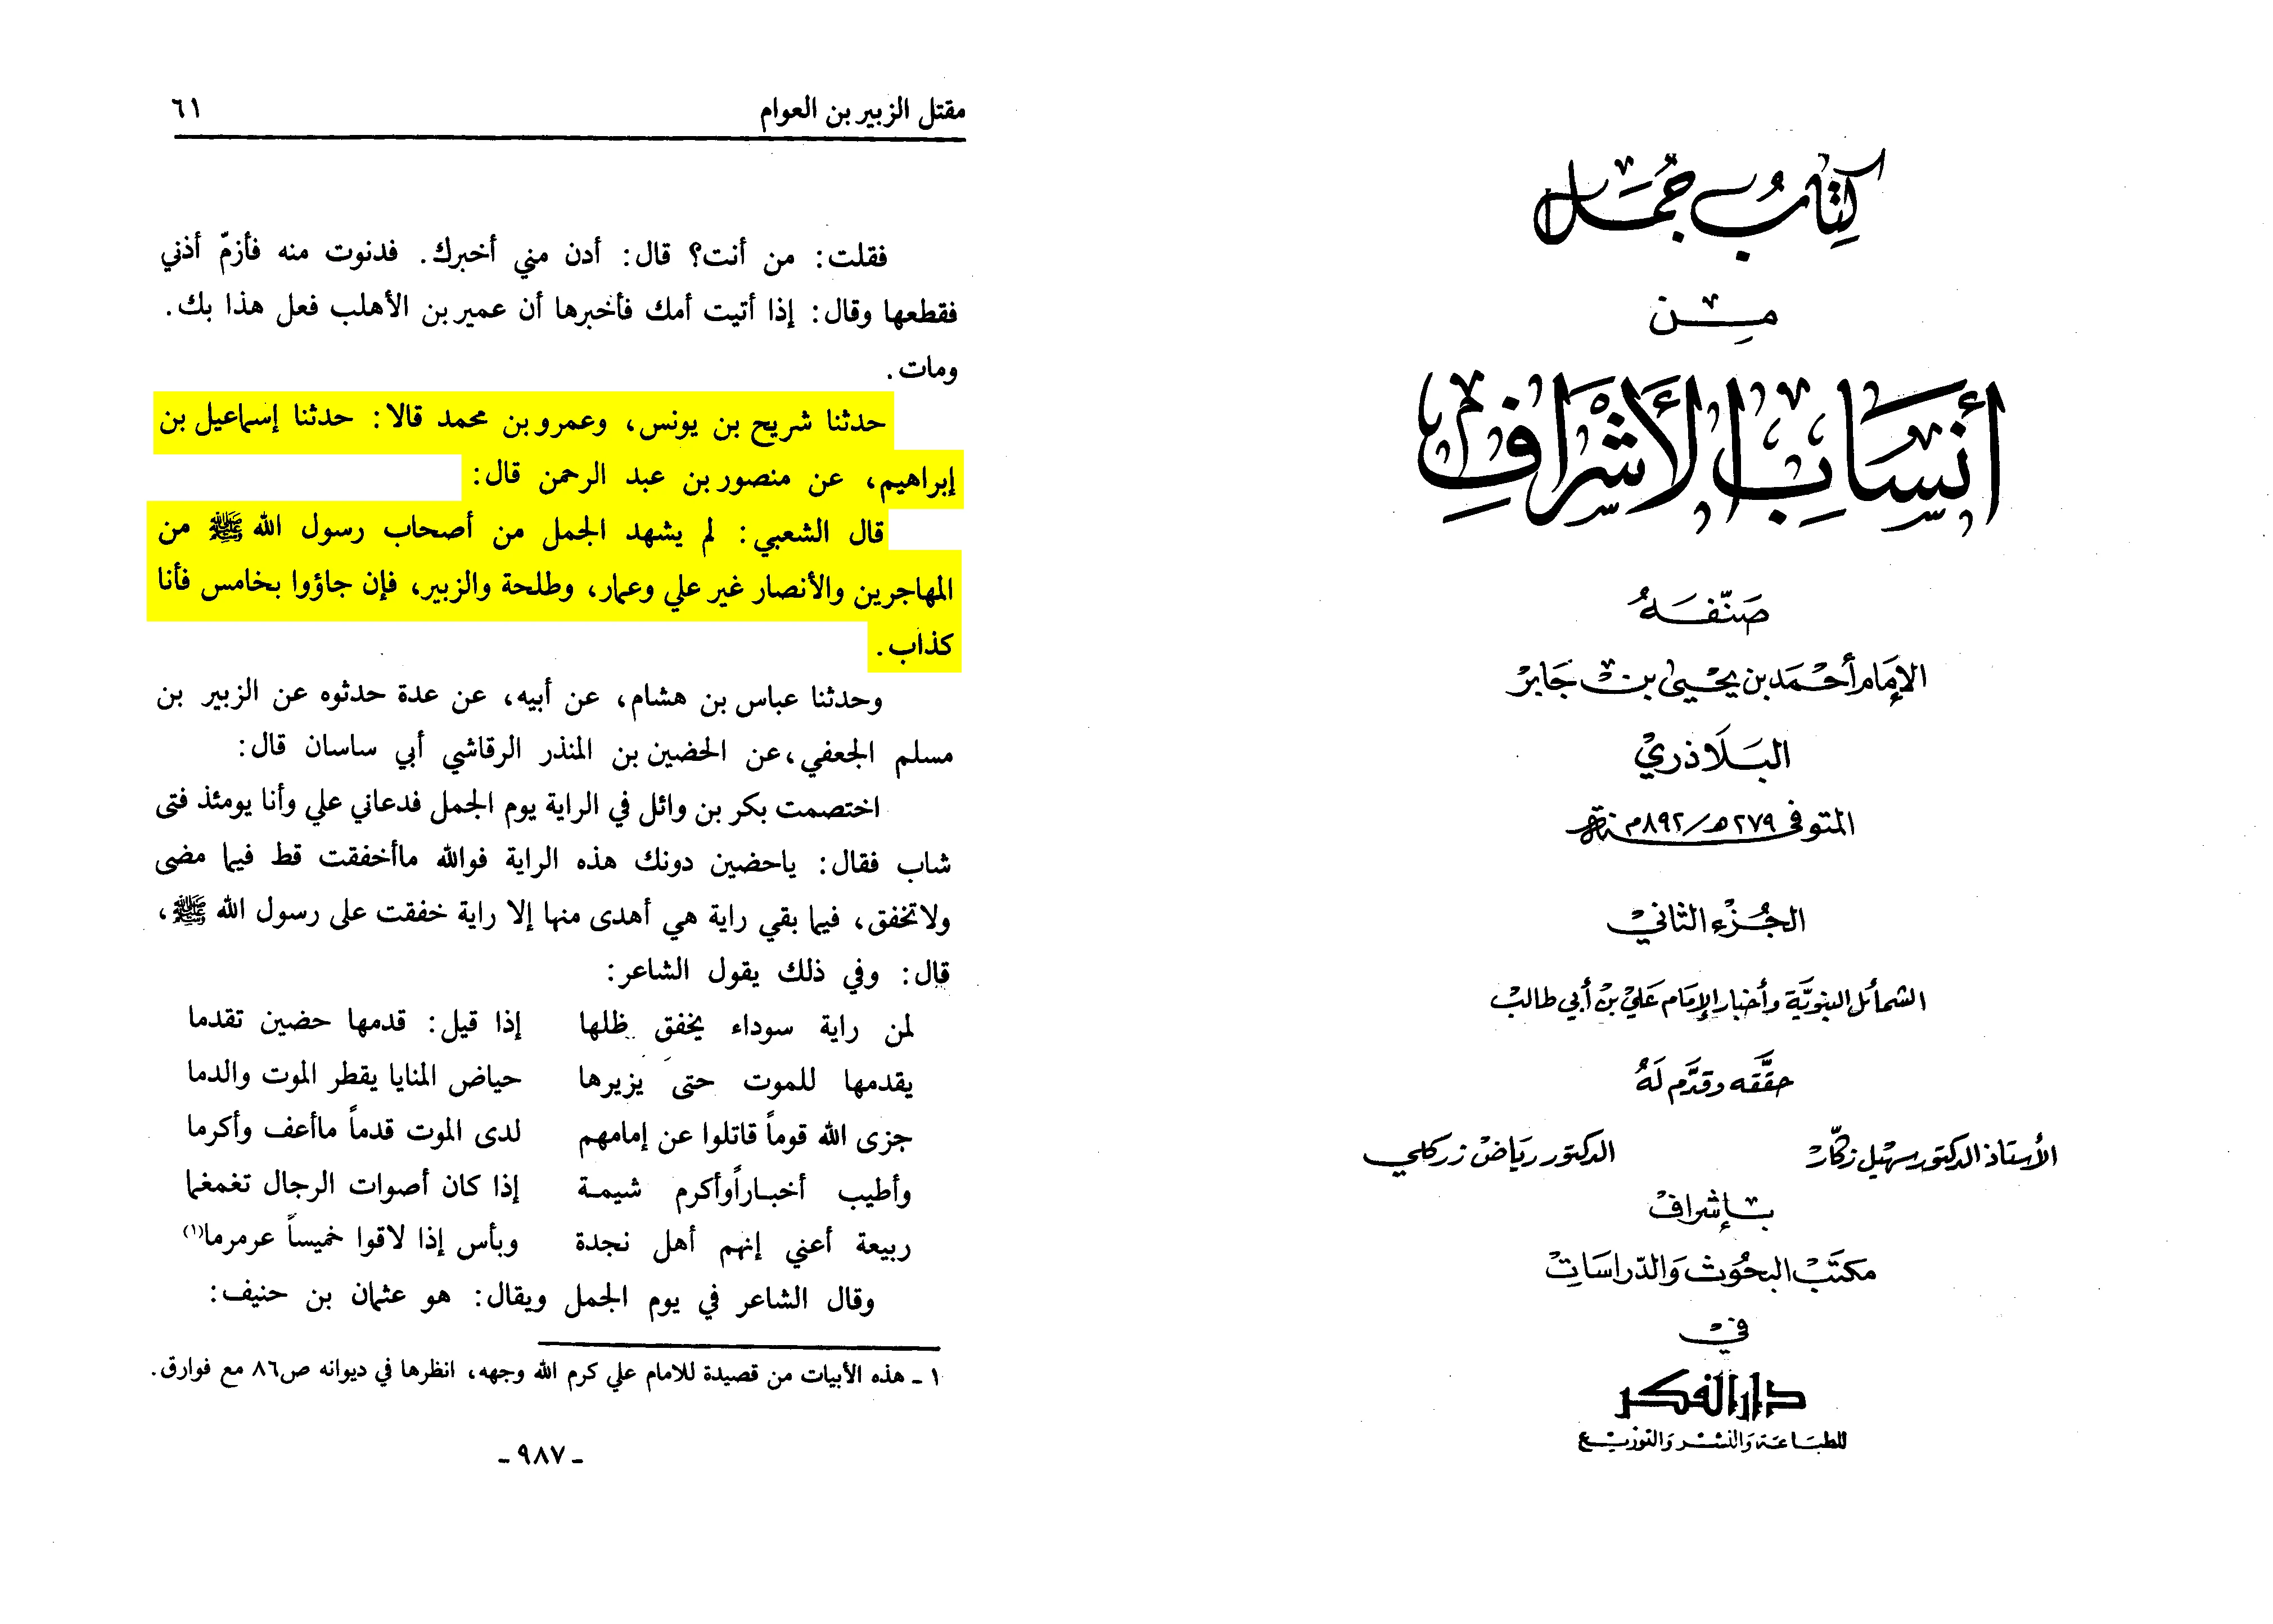 كتاب جُمَل
مِن
أنساب الأشراف
صَنّفَهُ
الإمَام أحْمَد بن يحْيىٰ بنْ جَابِرْ
البَلَاذريْ
المتوفى سنة ٢٧٩هـ/٨٩٢م
الجُزْء الثاني
الشمائل النبويَّة وأخبار الإمَام عَليْ بنْ أبي طالبْ
حقَّقه وقدَّم لَهُ
الأستاذ الدكتور سهيْل زكّارْ الدكتور ريَاضْ زركلي
بإشرافْ
مكتَبْ البحُوث وَالدّراسَاتْ
في
دار الفكر
للطبَاعَة وَالنشْر وَالتوزيْع
مقتل الزبير بن العوام ٦١
فقلت: من أنت؟ قال: أدن مني أخبرك. فدنوت منه فأزمّ أذني
فقطعها وقال: إذا أتيت أمك فأخبرها أن عمير بن الأهلب فعل هذا بك.
ومات.
حدثنا شريح بن يونس، وعمرو بن محمد قالا: حدثنا إسماعيل بن
إبراهيم، عن منصور بن عبد الرحمن قال:
قال الشعبي: لم يشهد الجمل من أصحاب رسول الله ﷺ من
المهاجرين والأنصار غير علي وعمار، وطلحة والزبير، فإن جاؤوا بخامس فأنا
كذاب.
وحدثنا عباس بن هشام، عن أبيه، عن عدة حدثوه عن الزبير بن
مسلم الجعفي، عن الحضين بن المنذر الرقاشي أبي ساسان قال:
اختصمت بكر بن وائل في الراية يوم الجمل فدعاني علي وأنا يومئذ فتى
شاب فقال: ياحضين دونك هذه الراية فوالله ماأخفقت قط فيما مضى
ولاتخفق، فيما بقي راية هي أهدى منها إلا راية خفقت على رسول الله ﷺ،
قال: وفي ذلك يقول الشاعر:
لمن راية سوداء يخفق ظلها إذا قيل: قدمها حضين تقدما
يقدمها للموت حتى يزيرها حياض المنايا يقطر الموت والدما
جزى الله قوماً قاتلوا عن إمامهم لدى الموت قدماً ماأعف وأكرما
وأطيب أخباراًوأكرم شيمة إذا كان أصوات الرجال تغمغما
ربيعة أعني إنهم أهل نجدة وبأس إذا لاقوا خميساً عرمرما(١)
وقال الشاعر في يوم الجمل ويقال: هو عثمان بن حنيف:
١ ـ هذه الأبيات من قصيدة للامام علي كرم الله وجهه، انظرها في ديوانه ص٨٦ مع فوارق.
ـ ٩٨٧ ـ